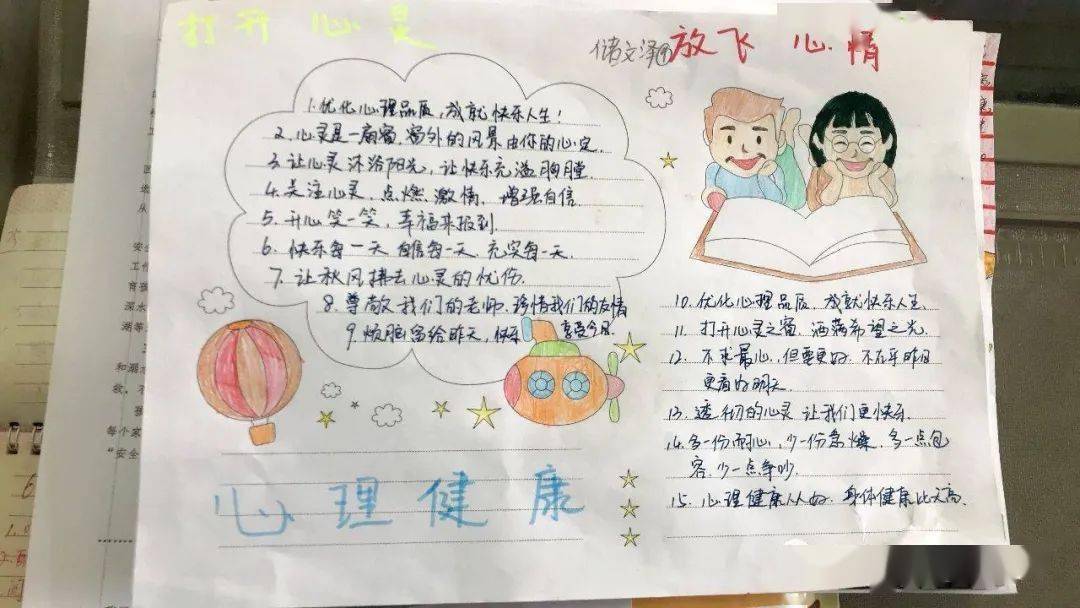 打开 心灵
储文泽
放飞 心情
1.优化心理品质,成就快乐人生!
2.心灵是一扇窗,窗外的风景由你的心定.
3.让心灵沐浴阳光,让快乐充溢胸膛.
4.关注心灵,点燃激情,增强自信.
5.开心笑一笑,幸福来报到.
6.快乐每一天 自信每一天 充实每一天.
7.让秋风拂去心灵的忧伤.
8.尊敬我们的老师,珍惜我们的友情
9.烦恼留给昨天,快乐享受今日.
10.优化心理品质,成就快乐人生.
11.打开心灵之窗,洒满希望之光.
12.不求最心,但需更好,不在乎昨日
更有好明天.
13.透彻的心灵 让我们更快乐.
14.多一份耐心,少一份急燥,多一点包
容,少一点争吵.
15.心理健康人人好,身体健康比天高.
心理健康
安全
工作
育孩
深水
湖等
和溺水
救,不
孩
每个家
"安全